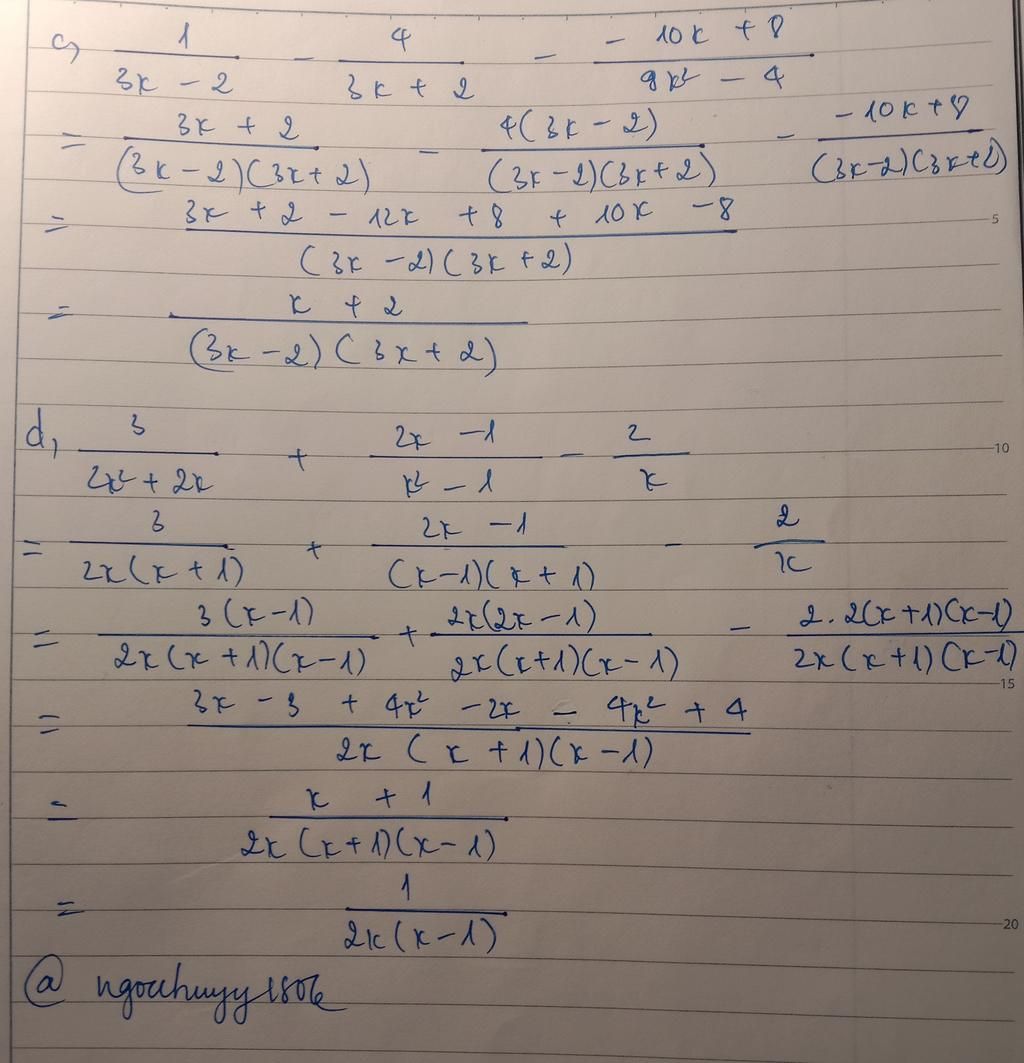 c, 1/(3x - 2) - 4/(3x + 2) - (-10x + 8)/(9x² - 4)
= (3x + 2)/((3x - 2)(3x + 2)) - 4(3x - 2)/((3x - 2)(3x + 2)) - (-10x + 8)/((3x - 2)(3x + 2))
= (3x + 2 - 12x + 8 + 10x - 8)/((3x - 2)(3x + 2))
5
= (x + 2)/((3x - 2)(3x + 2))
d, 3/(2x² + 2x) + (2x - 1)/(x² - 1) - 2/x
10
= 3/(2x(x + 1)) + (2x - 1)/((x - 1)(x + 1)) - 2/x
= 3(x - 1)/(2x(x + 1)(x - 1)) + 2x(2x - 1)/(2x(x + 1)(x - 1)) - 2.2(x + 1)(x - 1)/(2x(x + 1)(x - 1))
15
= (3x - 3 + 4x² - 2x - 4x² + 4)/(2x(x + 1)(x - 1))
= (x + 1)/(2x(x + 1)(x - 1))
= 1/(2x(x - 1))
20
@ ngocchuyy1806